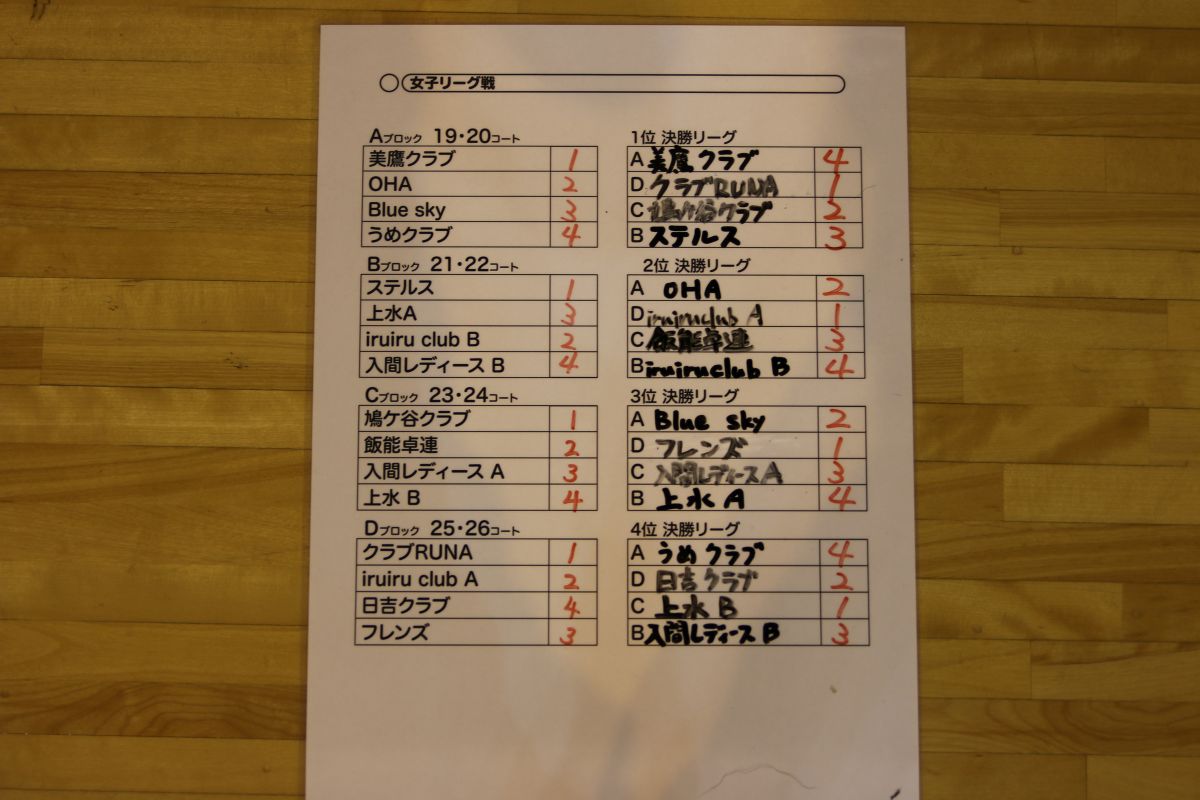 女子リーグ戦
Aブロック 19・20コート
美鷹クラブ 1
OHA 2
Blue sky 3
うめクラブ 4
Bブロック 21・22コート
ステルス 1
上水A 3
iruiru club B 2
入間レディース B 4
Cブロック 23・24コート
鳩ケ谷クラブ 1
飯能卓連 2
入間レディース A 3
上水 B 4
Dブロック 25・26コート
クラブRUNA 1
iruiru club A 2
日吉クラブ 4
フレンズ 3
1位 決勝リーグ
A 美鷹クラブ 4
D クラブRUNA 1
C 鳩ケ谷クラブ 2
B ステルス 3
2位 決勝リーグ
A OHA 2
D iruiruclub A 1
C 飯能卓連 3
B iruiruclub B 4
3位 決勝リーグ
A Blue sky 2
D フレンズ 1
C 入間レディースA 3
B 上水 A 4
4位 決勝リーグ
A うめクラブ 4
D 日吉クラブ 2
C 上水 B 1
B 入間レディース B 3